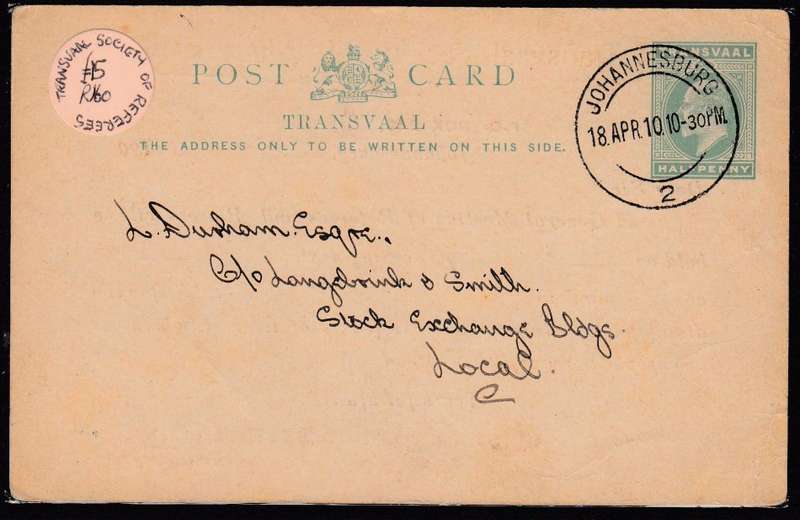 TRANSVAAL SOCIETY OF REFEREES
£15
R160
POST CARD
TRANSVAAL
THE ADDRESS ONLY TO BE WRITTEN ON THIS SIDE.
TRANSVAAL
HALFPENNY
JOHANNESBURG
18.APR.10.10-30PM.
2
L. Durham. Esqre.,
C/o Langebrink & Smith.
Stock Exchange Bldgs.
Local.